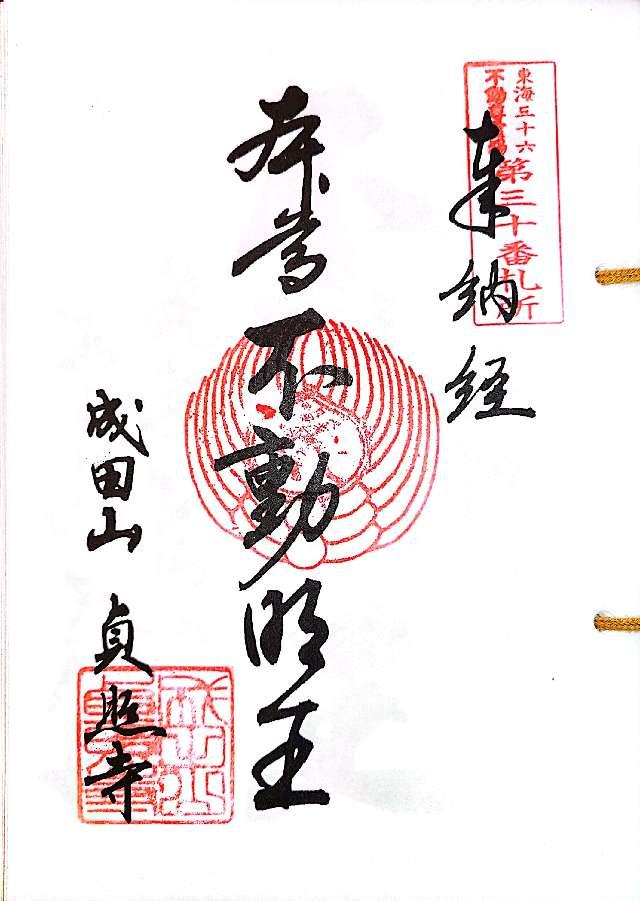 東海三十六
不動尊霊場
第三十番札所
奉納経
本尊不動明王
成田山 貞照寺